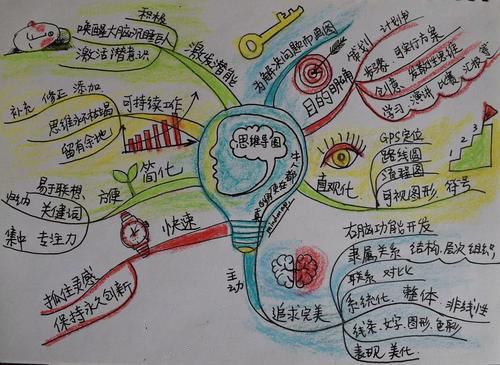 思维导图
Mind map
激发潜能
积极
唤醒大脑沉睡巨人
激活潜意识
为解决问题而画图
目的明确
策划 计划书
可执行方案
创意 发散性思维
学习 演讲 比赛 汇报
直观化
GPS定位
路线图
流程图
可视图形 符号
1 2 3
主动
追求完美
右脑功能开发
隶属关系 结构 层次 组织
联系 对比
系统化 整体 非线性
线条 文字 图形 色彩
表现 美化
快速
抓住灵感
保持永久创新
简化
方便
易于联想
归纳 关键词
集中 专注力
可持续工作
补充 修正 添加
思维永不枯竭
留有余地